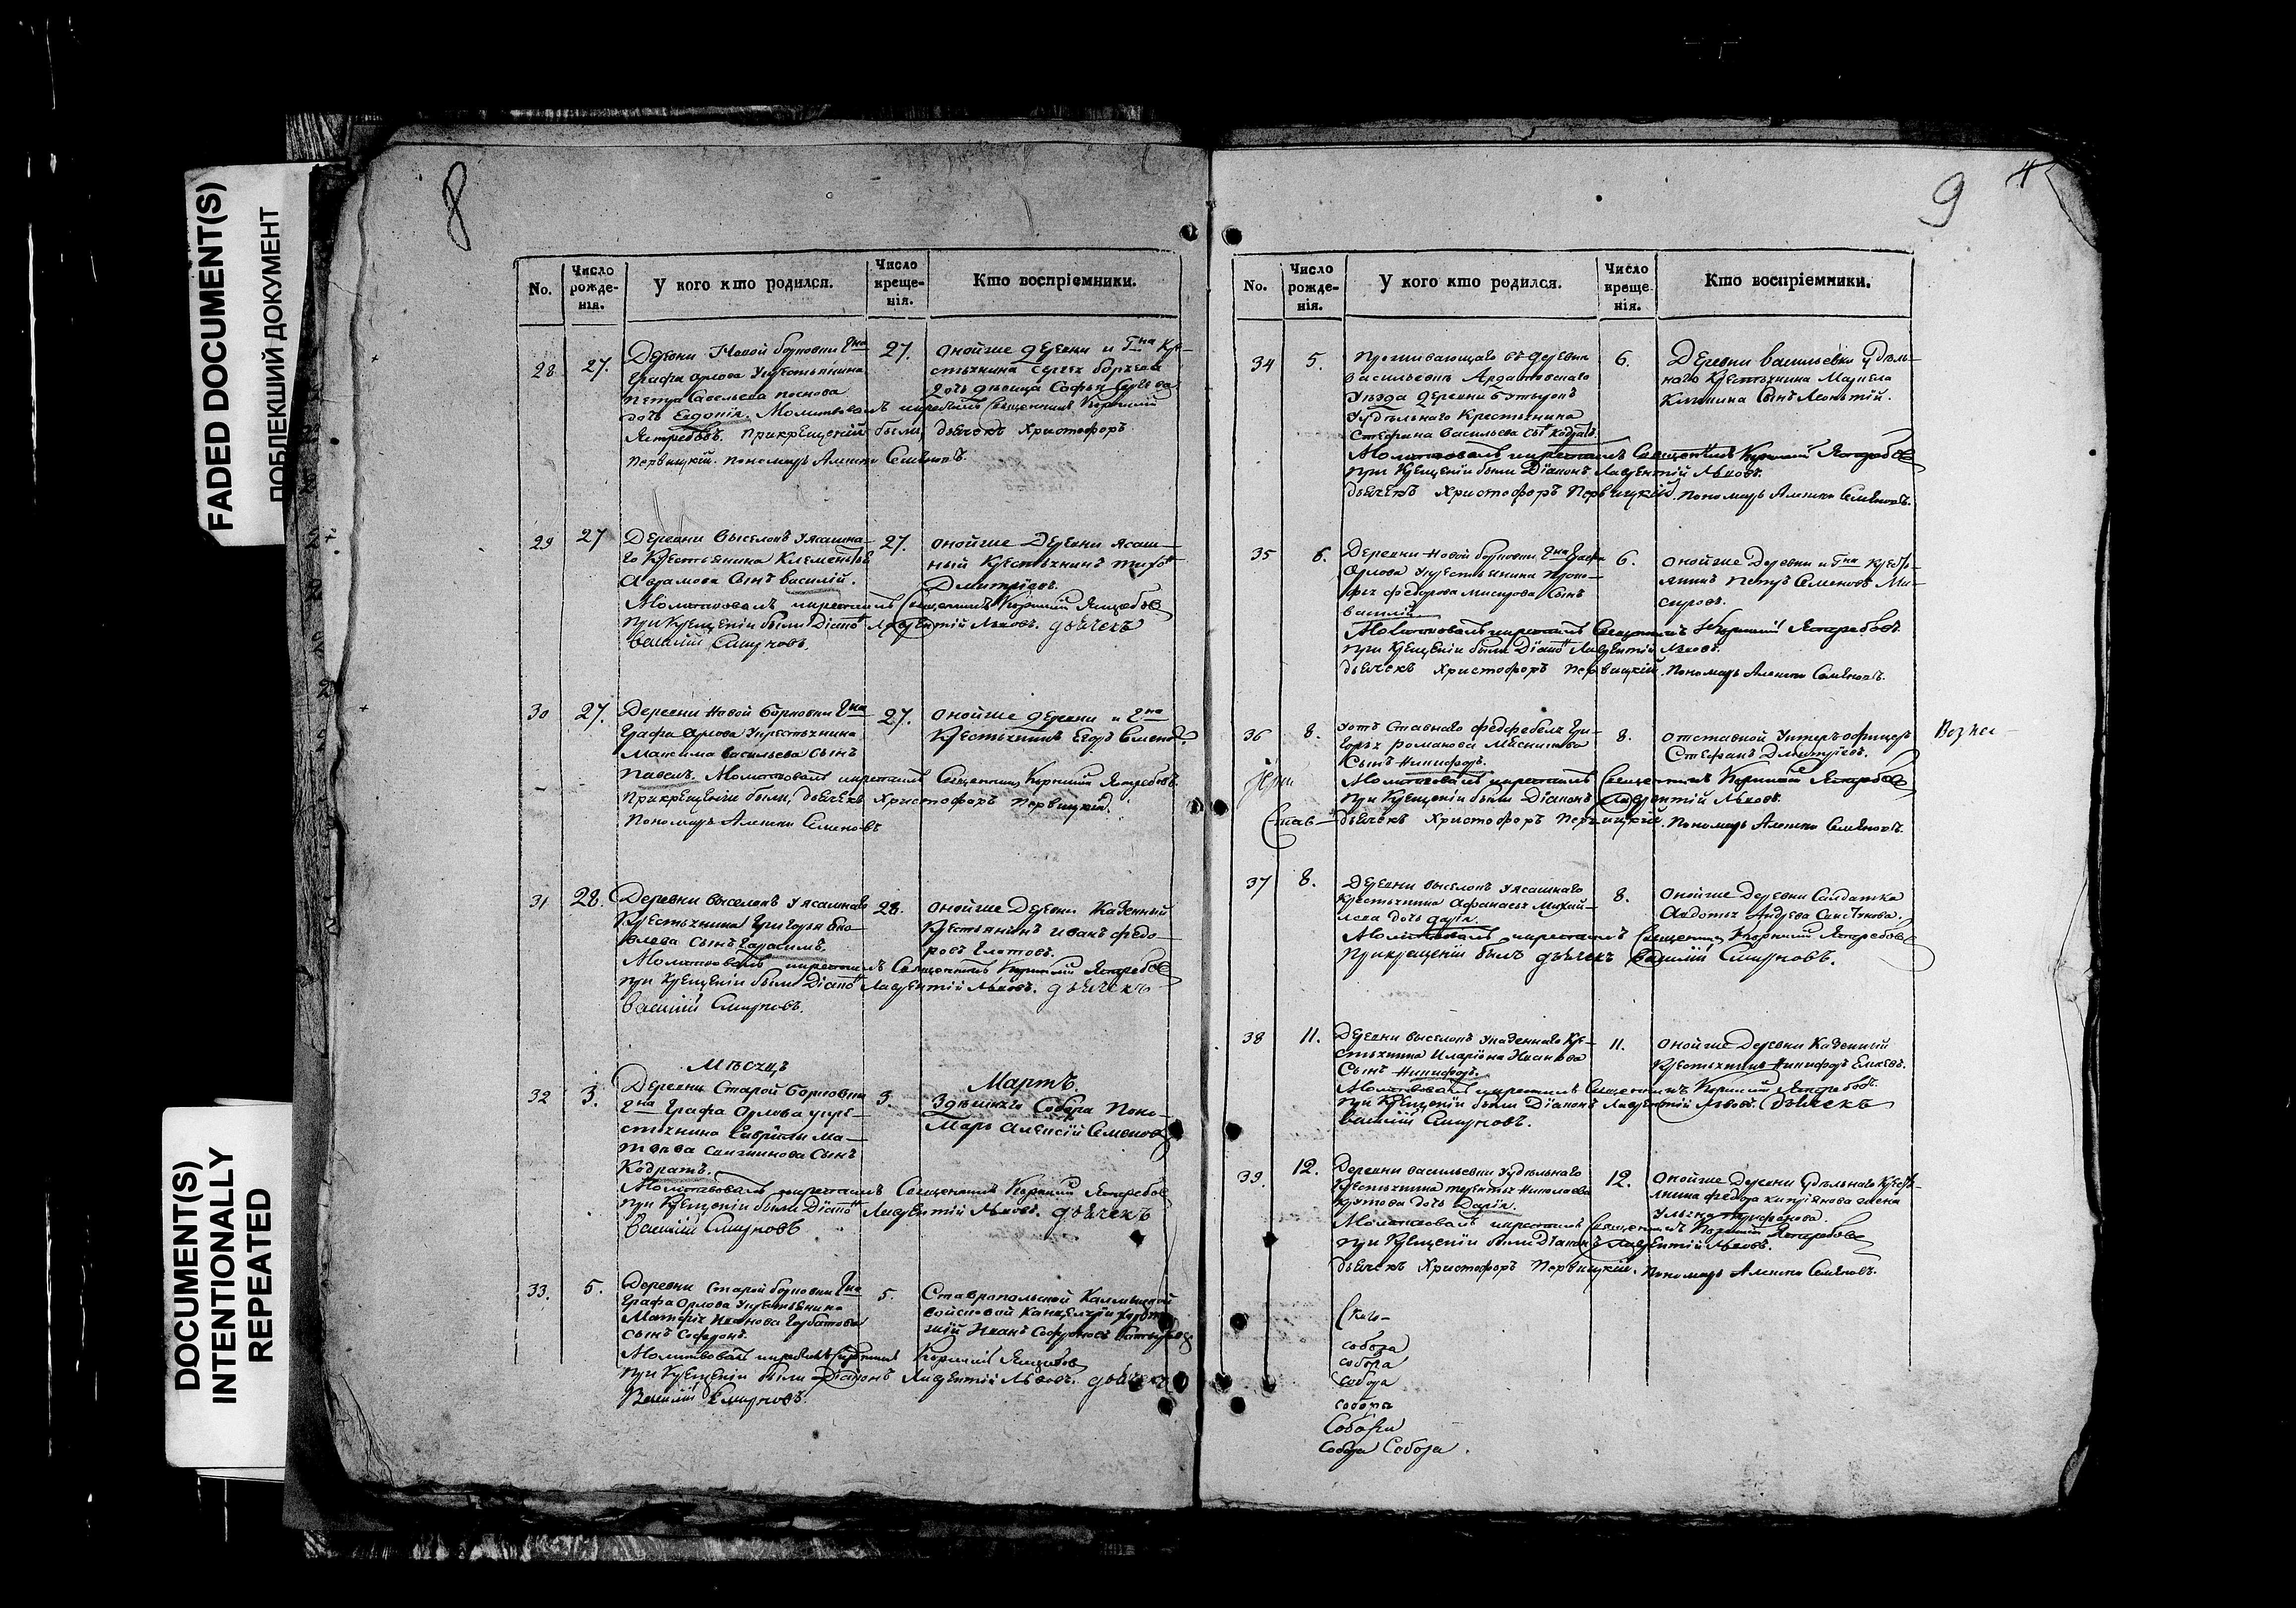 FADED DOCUMENT(S)
ПОБЛЕКШИЙ ДОКУМЕНТ
DOCUMENT(S)
INTENTIONALLY
REPEATED
8
No.
Число рожденія.
У кого кто родился.
Число крещенія.
Кто воспріемники.
28
27.
Деревни Новой борковки Гна
Графа Орлова у крестьянина
Петра Савельева
дочь Евдокія. Молитвовалъ и крестилъ Священникъ Корнилій
Ястребовъ. При крещеніи были, дьячекъ Христофоръ
Первицкій. пономарь Алексей Семеновъ.
27.
оной же деревни и Гна кре-
стьянина Сергея
дочь девица Софья
29
27
Деревни Выселокъ у ясашна-
го крестьянина Клементья
Аврамова сынъ Василій.
Молитвовалъ и крестилъ Священникъ Корнилій Ястребовъ
при крещеніи были Діаконъ Лаврентій Львовъ. дьячекъ
Василій Смирновъ.
27.
оной же Деревни ясаш-
ный крестьянинъ
Дмитріевъ.
30
27.
Деревни Новой Борковки Гна
Графа Орлова у крестьянина
Максима Васильева сынъ
Павелъ. Молитвовалъ и крестилъ Священникъ Корнилій Ястребовъ.
При крещеніи были, дьячекъ Христофоръ Первицкій.
Пономарь Алексей Семеновъ
27.
оной же деревни и Гна
крестьянинъ Егоръ
31
28.
Деревни Выселокъ у ясашнаго
крестьянина Григорья Яко-
влева сынъ Герасимъ.
Молитвовалъ и крестилъ Священникъ Корнилій Ястребовъ
при крещеніи были Діаконъ Лаврентій Львовъ. дьячекъ
Василій Смирновъ.
28.
оной же Деревни Казенный
крестьянинъ Иванъ Федо-
ровъ
Месяцъ
Мартъ.
32
3.
Деревни Старой борковки
Гна Графа Орлова у кре-
стьянина Гаврилы Ма-
сынъ
Кодратъ.
Молитвовалъ и крестилъ Священникъ Корнилій Ястребовъ
при крещеніи были Діаконъ Лаврентій Львовъ. дьячекъ
Василій Смирновъ
3.
Здешняго Собора Поно-
марь Алексій Семеновъ
33.
5.
Деревни Старой борковки Гна
Графа Орлова у крестьянина
Ивановa Горбатова
сынъ Софронъ.
Молитвовалъ и крестилъ Священникъ Корнилій Ястребовъ
при крещеніи были Діаконъ Лаврентій Львовъ. дьячекъ
Василій Смирновъ.
5.
Ставропольской Калмыцкой
войсковой Канцеляріи
Иванъ
9
4
No.
Число рожденія.
У кого кто родился.
Число крещенія.
Кто воспріемники.
34
5.
Проживающаго въ деревни
Васильевки Ардатовскаго
Уезда деревни
удельнаго крестьянина
Стефана Васильева сынъ Кодратъ.
Молитвовалъ и крестилъ Священникъ Корнилій Ястребовъ
при крещеніи были Діаконъ Лаврентій Львовъ.
дьячекъ Христофоръ Первицкій. Пономарь Алексей Семеновъ.
6.
Деревни Васильевки удель-
наго крестьянина
сынъ Леонтій.
35
6.
Деревни Новой борковки Гна Графа
Орлова у крестьянина Проко-
фья Федорова Мисюрова сынъ
Василій
Молитвовалъ и крестилъ Священникъ Корнилій Ястребовъ.
при крещеніи были Діаконъ Лаврентій Львовъ.
дьячекъ Христофоръ Первицкій. Пономарь Алексей Семеновъ.
6.
оной же Деревни и Гна кресть-
янинъ Петръ Семеновъ Ми-
сюровъ.
36
8.
у отставнаго федфебеля Гри-
горья Романова Мясникова
сынъ Никифоръ.
Молитвовалъ и крестилъ Священникъ Корнилій Ястребовъ
при крещеніи были Діаконъ Лаврентій Львовъ.
дьячекъ Христофоръ Первицкій. Пономарь Алексей Семеновъ.
8.
отставной Унтеръ офицеръ
Стефанъ Дмитріевъ.
При
Став
37
8.
Деревни Выселокъ у ясашнаго
крестьянина Афанасья Михай-
лова дочь Дарія.
Молитвовалъ и крестилъ Священникъ Корнилій Ястребовъ
При крещеніи былъ дьячекъ Василій Смирновъ.
8.
оной же Деревни Салдатка
Авдотья
38
11.
Деревни Выселокъ у казеннаго кре-
стьянина Иларіона Иванова
Сынъ Никифоръ.
Молитвовалъ и крестилъ Священникъ Корнилій Ястребовъ.
при крещеніи были Діаконъ Лаврентій Львовъ. Дьячекъ
Василій Смирновъ.
11.
оной же Деревни Казенный
крестьянинъ Никифоръ
39.
12.
Деревни Васильевки удельнаго
крестьянина Терентья Николаева
дочь Дарія.
Молитвовалъ и крестилъ Священникъ Корнилій Ястребовъ
при крещеніи были Діаконъ Лаврентій Львовъ.
дьячекъ Христофоръ Первицкій. Пономарь Алексей Семеновъ.
12.
оной же Деревни удельнаго кресть-
янина Федора Кипріянова жена
Ульяна
собора
собора
собора
собора
Собора
Собора Собора.